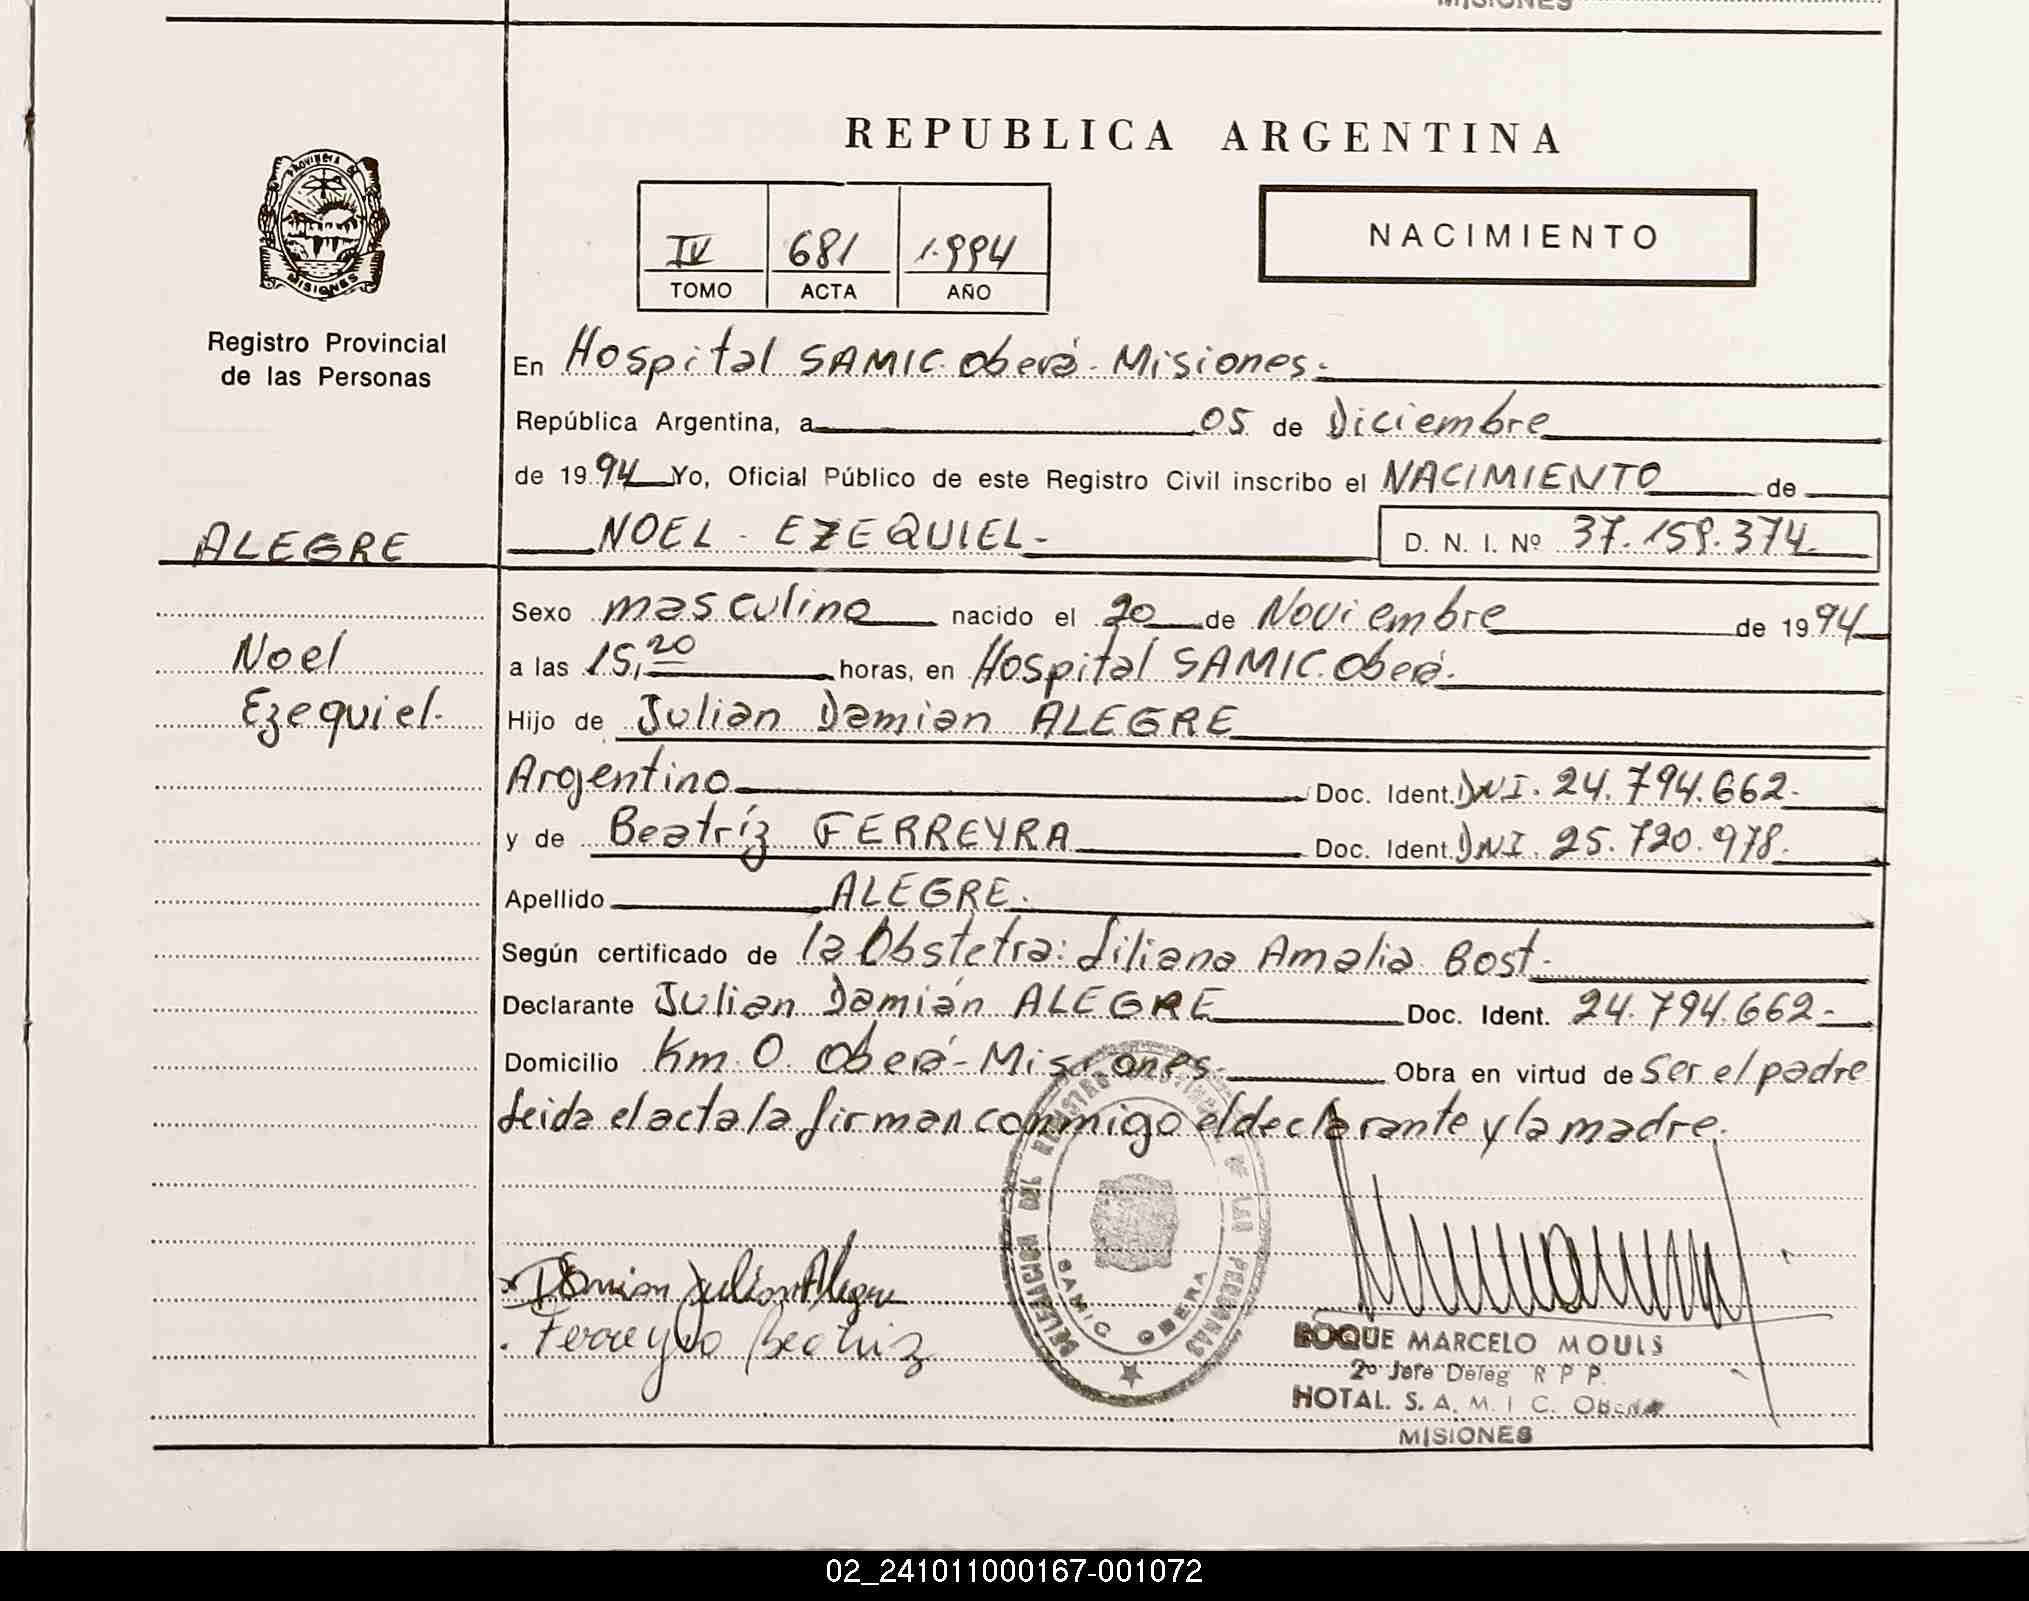 MISIONES
REPUBLICA ARGENTINA
PROVINCIA DE
MISIONES
IV 681 1.994
TOMO ACTA AÑO
NACIMIENTO
Registro Provincial
de las Personas
En Hospital SAMIC. Oberá - Misiones.
República Argentina, a 05 de Diciembre
de 1994 Yo, Oficial Público de este Registro Civil inscribo el NACIMIENTO de
ALEGRE
NOEL - EZEQUIEL - D. N. I. Nº 37.159.374
Sexo masculino nacido el 20 de Noviembre de 1994
Noel
a las 15,20 horas, en Hospital SAMIC. Oberá.
Ezequiel.
Hijo de Julian Damian ALEGRE
Argentino Doc. Ident. DNI. 24.794.662-
y de Beatríz FERREYRA Doc. Ident. DNI. 25.720.978.
Apellido ALEGRE.
Según certificado de la Obstetra: Liliana Amalia Bost.
Declarante Julian Damián ALEGRE Doc. Ident. 24.794.662-
Domicilio Km. 0. Oberá - Misiones- Obra en virtud de Ser el padre
Leida el acta la firman conmigo el declarante y la madre.
DELEGACION DEL REGISTRO PROVINCIAL DE LAS PERSONAS
SAMIC OBERA
Damian Julian Alegre
Ferreyra Beatriz
ROQUE MARCELO MOULS
2º Jefe Deleg R P P.
HOTAL. S. A. M. I C. OBERA
MISIONES
02_241011000167-001072